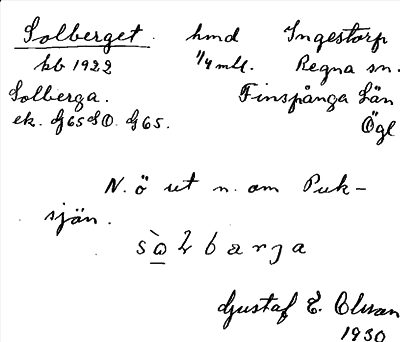 Solberget. hmd Ingestorp
kb 1922 1/4 mtl. Regna sn.
Solberga. Finspånga Län
ek. G65SO. G65. Ögl
N. ö ut n. om Puk-
sjön.
Gustaf E. Olsson
1930